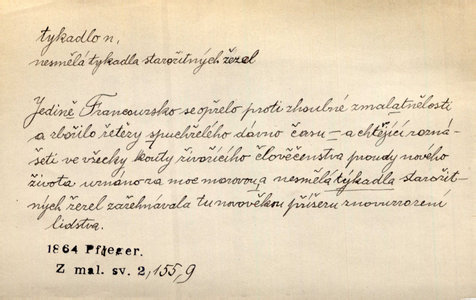 tykadlo n,
nesmělá tykadla starožitných řezel
Jedině Francouzsko se opřelo proti zhoubné zmalatnělosti
a zbořilo řetěry spuchřelého dávno času – a chtějící rozná-
šeti ve všechy kouty živořícího člověčenstva proudy nového
života uznáno za moc morovou a nesmělá tykadla starožit-
ných řezel zařehnávala tu novověkou příšeru znovuzrození
lidstva.
1864 Pfleger.
Z mal. sv. 2, 155, 9